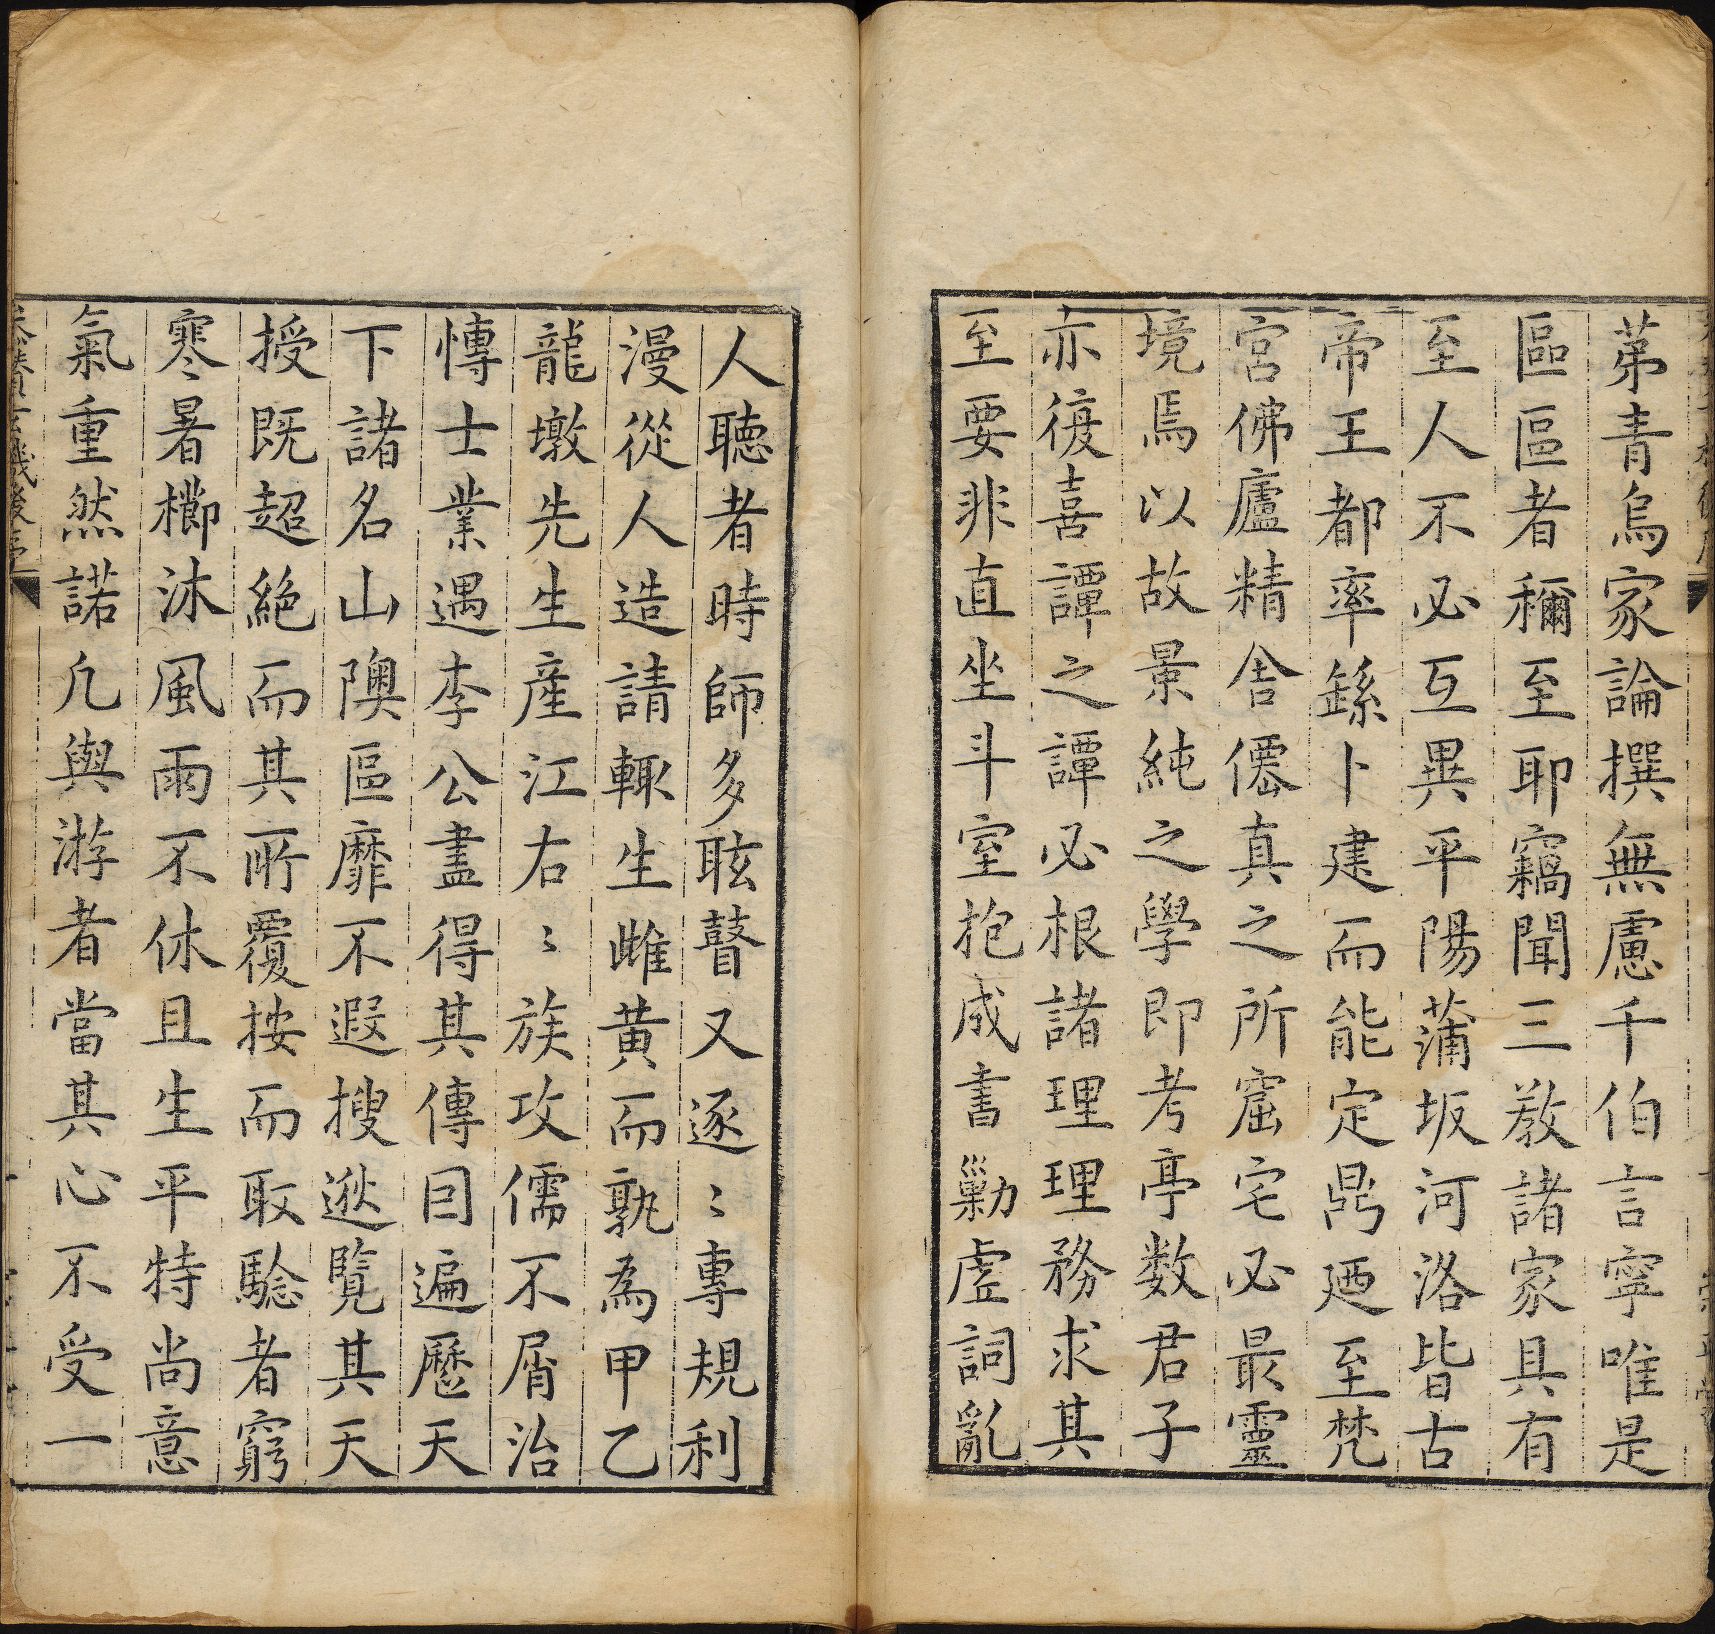 苐青烏家論撰無慮千伯言寧唯是
區區者稱至耶竊聞三教諸家具有
至人不必亙異平陽蒲坂河洛皆古
帝王都率繇卜建而能定鼎廼至梵
宮佛廬精舍僊真之所窟宅必最靈
境焉以故景純之學即考亭数君子
亦復喜譚之譚必根諸理理務求其
至要非直坐斗室抱成書勦虛詞亂
人聽者時師多眩瞽又逐〻專規利
漫從人造請輙生雌黄而孰為甲乙
龍墩先生産江右〻族攻儒不屑治
慱士業遇李公盡得其傳目遍歷天
下諸名山隩區靡不遐搜逖覽其天
授既超絶而其所覆按而取騐者窮
寒暑櫛沐風雨不休且生平特尚意
氣重然諾凢與游者當其心不受一